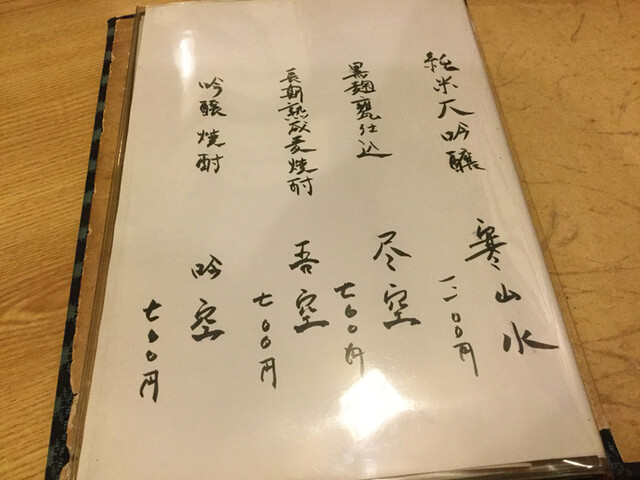 純米大吟醸
寒山水
一二〇〇円
黒麹甕仕込
尽空
七〇〇円
長期熟成麦焼酎
吾空
七〇〇円
吟醸焼酎
吟空
七〇〇円